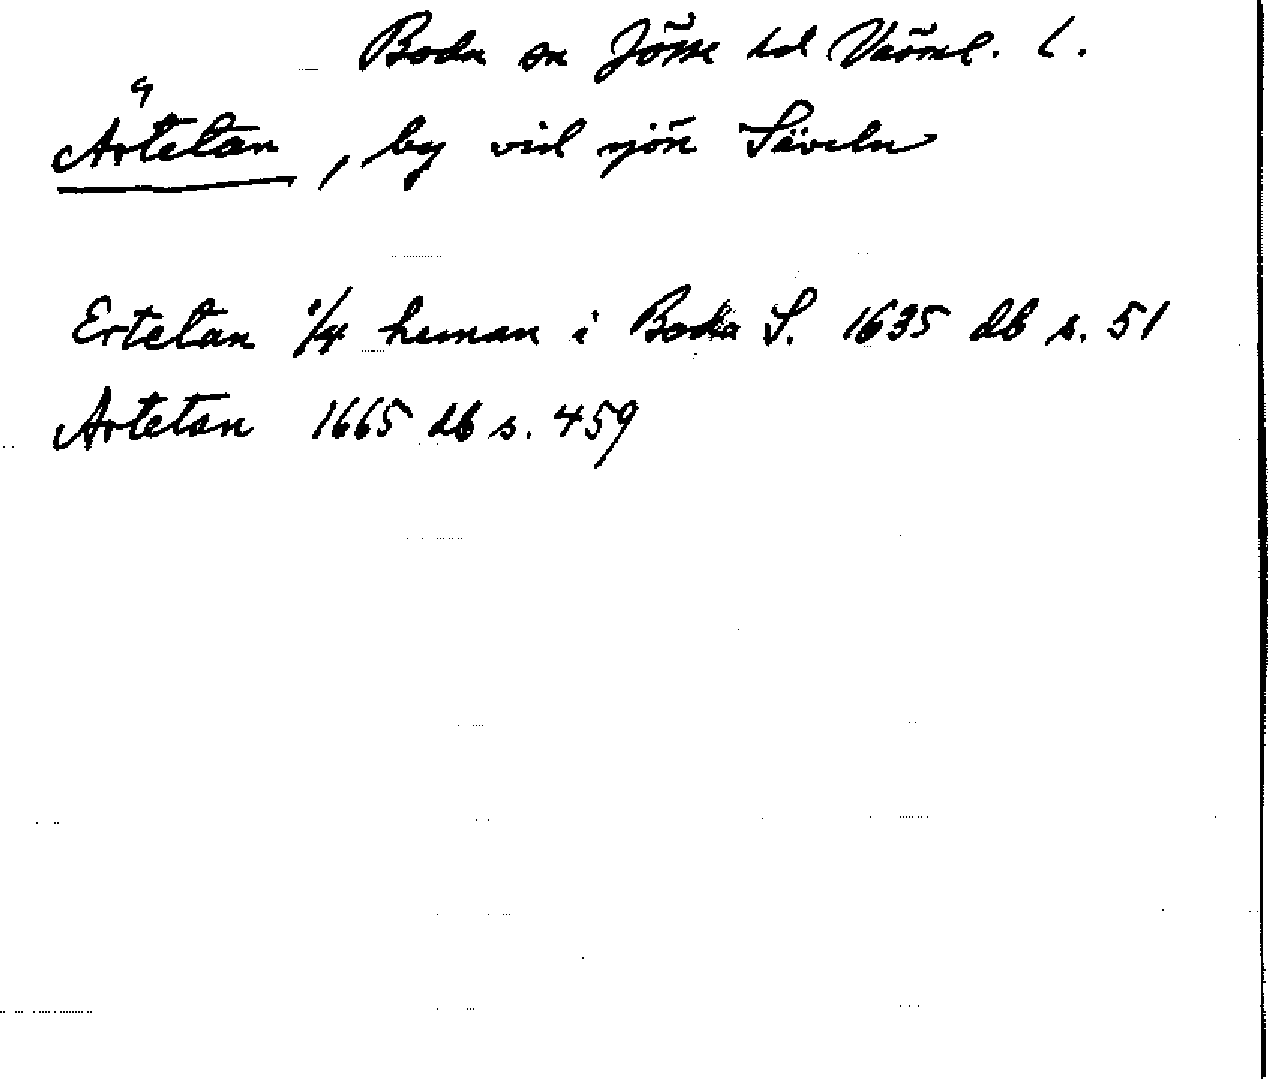 Boda sn Jösse hd Värml. l.
Ärtetan, by vid sjön Säveln
Ertetan 1/4 heman i Boda S. 1635 db s. 51
Artetan 1665 db s. 459